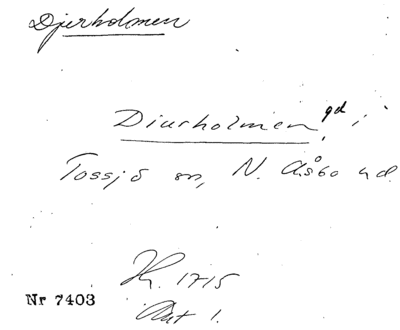 Djurholmen
Diurholmen, gd,
Tossjö sn, N. Åsbo hd.
Hr. 1715
Nr 7403
Akt 1.